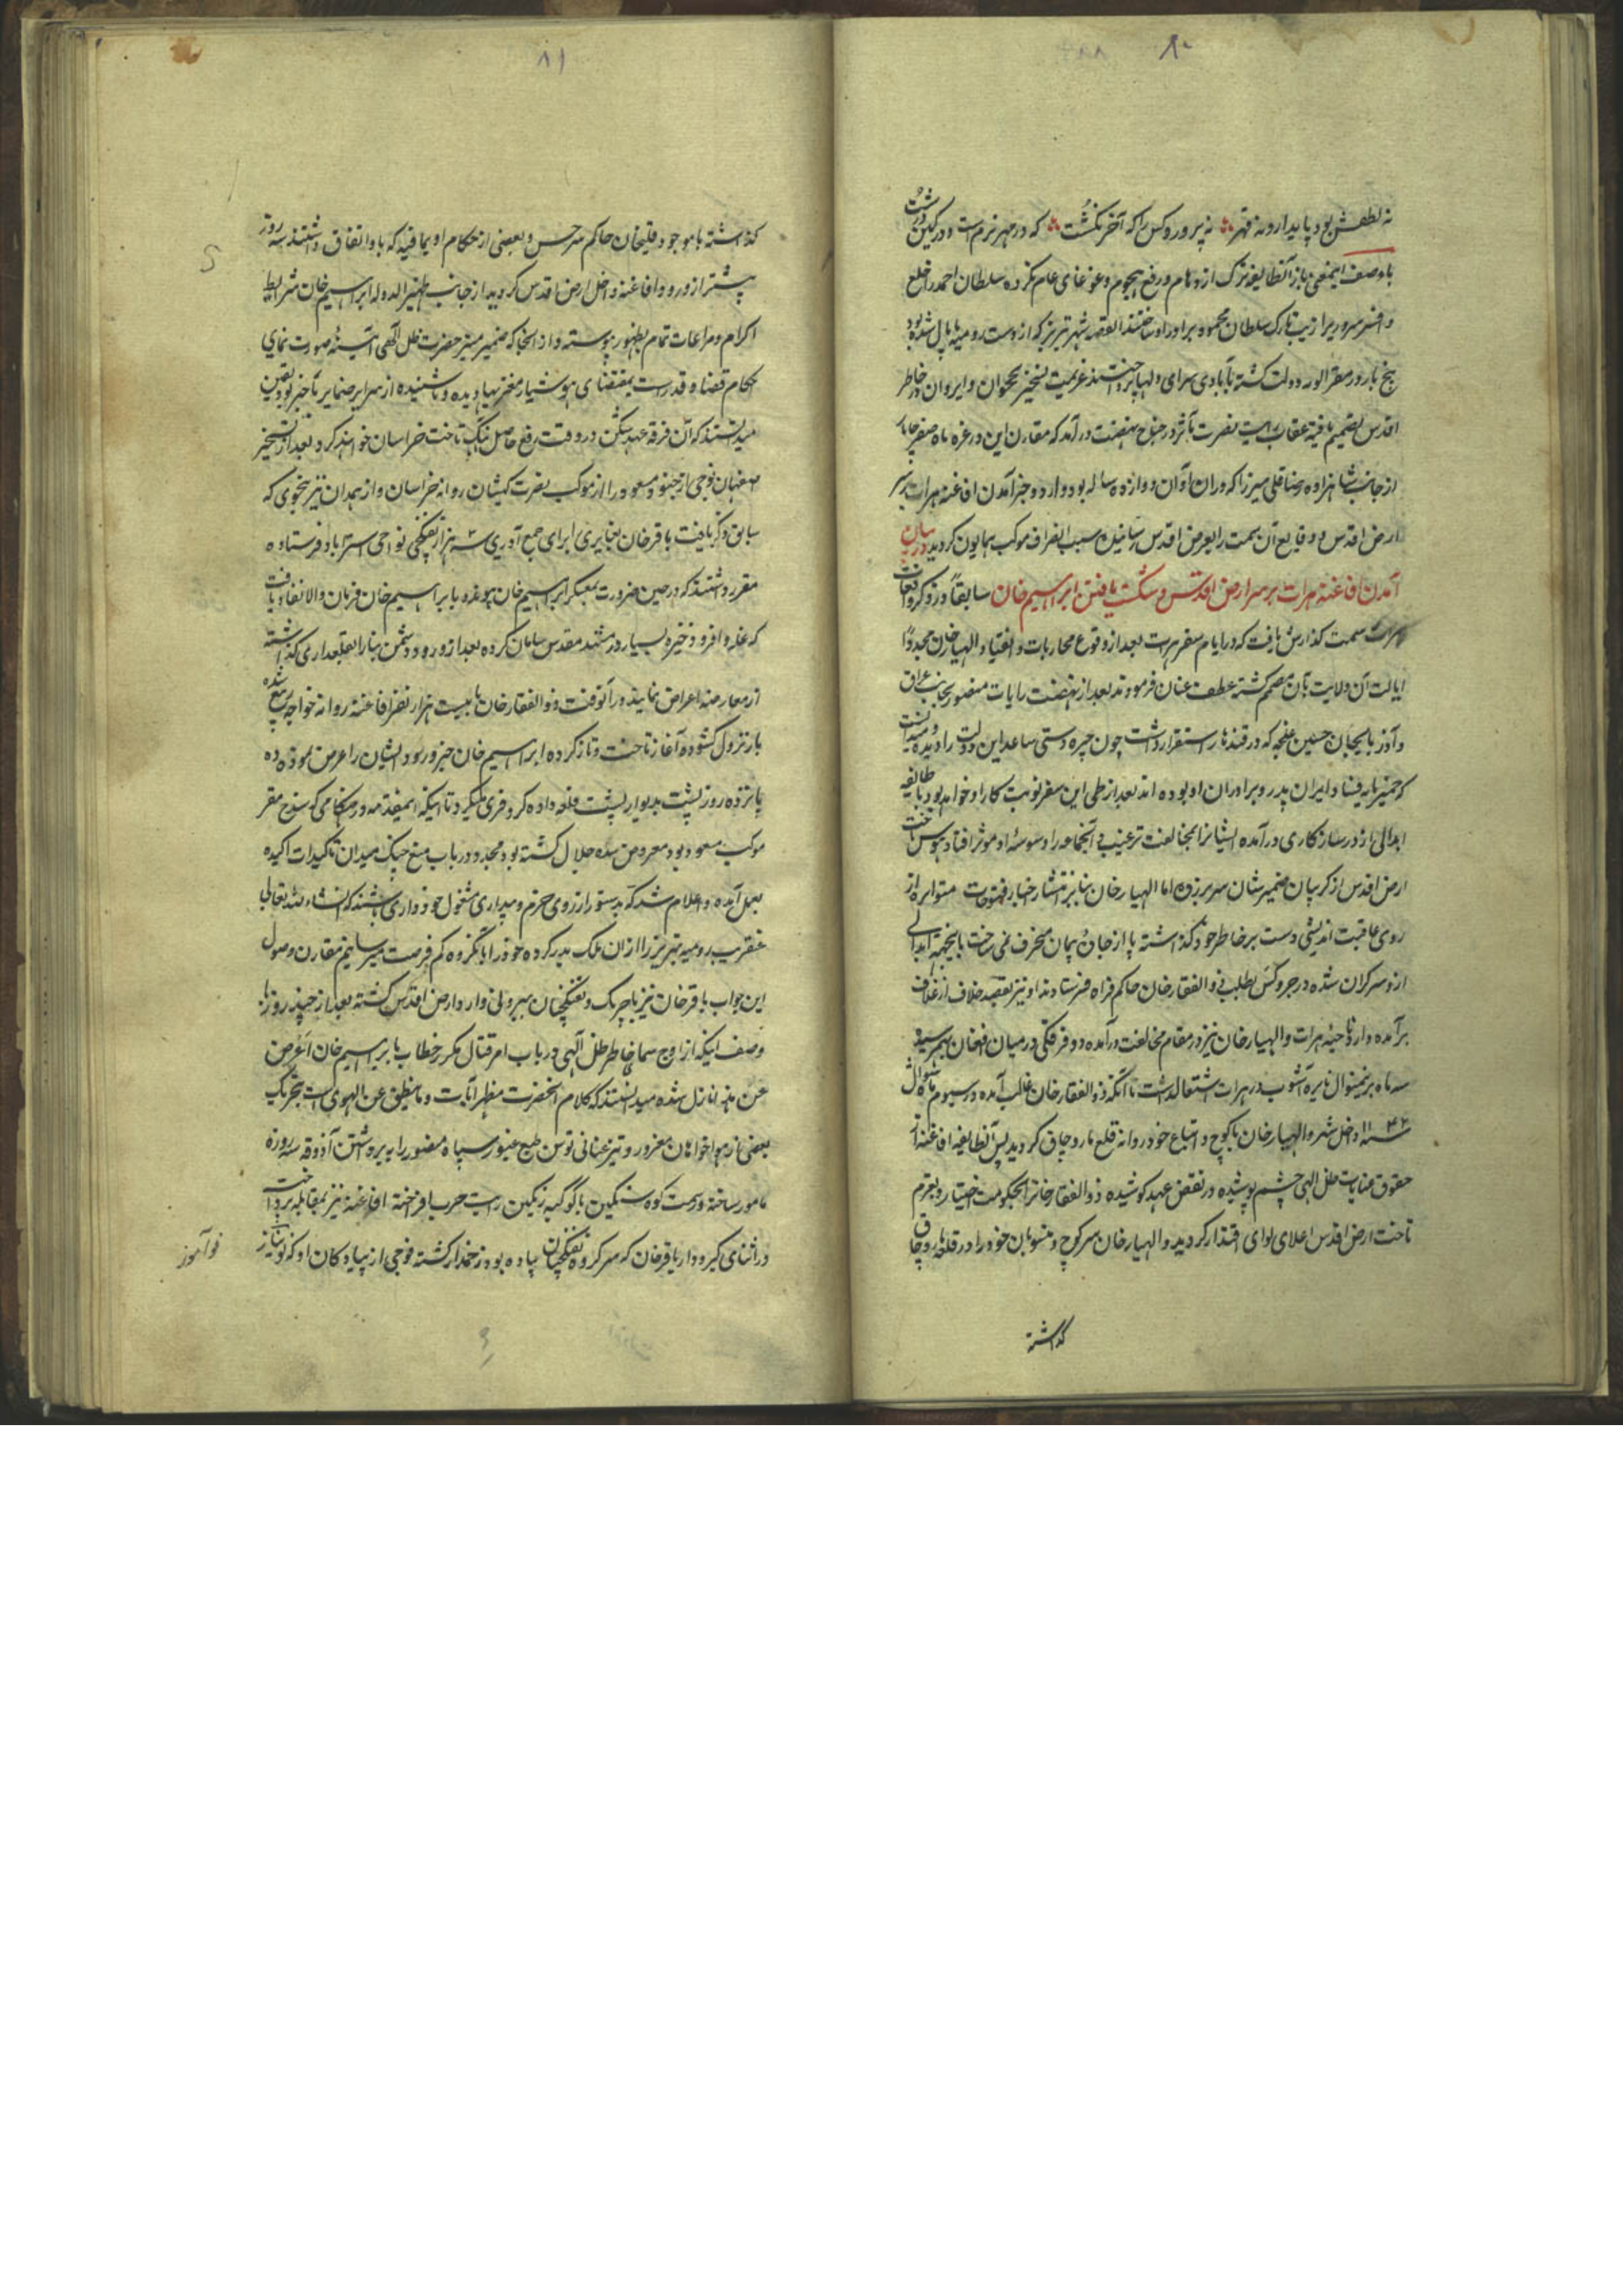 ۸۰
نه لطفش بود پایدار و نه قهر نه پرورد کس را که آخر نکشت که در مهر نرم است و در کین درشت
با وصف اینمعنی باز آنطایفه ترک ازدحام و رفع هجوم و غوغای عام نکرده سلطان احمد را خلع
و افسر سروریرا زیب تارک سلطان محمود برادر او ساختند القصه شهر تبریز که از دست رومیه پامال شده بود
پنج بار و مقر الویه دولت کشته بآبادی سرای دلها پرداختند عزیمت تسخیر نخجوان و ایروان در خاطر
اقدس تصمیم یافته عقاب رایت نصرت مآثر در جناح نهضت درآمد که مقارن این در غره ماه صفر چاپار
از جانب شاهزاده رضاقلی میرزا که در ان اوان دوازده ساله بود وارد و خبر آمدن افاغنه هرات بر سر
ارض اقدس و وقایع آن سمت را بعرض اقدس رسانیده سبب انصراف موکب همایون کردید در بیان
آمدن افاغنه هرات بر سر ارض اقدس و شکست یافتن ابراهیم خان سابقاً در ذکر وقعات
هرات سمت گذارش یافت که در ایام سفر هرات بعد از وقوع محاربات و انقیاد الهیار خان مجدداً
ایالت آن ولایت بآن مصمم کشته عطف عنان فرمودند بعد از نهضت رایات منصور بجانب عراق
و آذربایجان حسین غلجه که در قندهار استقرار داشت چون چیره دستی ساعد این دولت را دیده میدانست
که خمیرمایه فساد ایران پدر و برادران او بوده اند بعد از طی این سفر نوبت کار او خواهد بود با طایفه
ابدالی از در سازکاری درآمده ایشانرا بمخالفت ترغیب و آنجماعه را وسوسه او موثر افتاد هوس تاخت
ارض اقدس از کریبان ضمیرشان سر بر زده اما الهیار خان بنابر انتشار اخبار فتوحات متواتره از
روی عاقبت اندیشی دست بر خاطر خود گذاشته پا از جاده پیمان منحرف نمی ساخت باینجهة ابدالی
از و سرکران شده در جزو کس بطلب ذوالفقار خان حاکم فراه فرستادند او نیز بقصد خلاف از غلاف
برآمده وارد ناحیه هرات و الهیار خان نیز در مقام مخالفت درآمده دو فرقکی در میان افغان بهم رسید
سه ماه برینمنوال نایره آشوب در هرات اشتعال داشت تا آنکه ذوالفقار خان غالب آمده در سیوم ماه شوال
سنه ۱۱۴۲ داخل شهر و الهیار خان با کوچ و اتباع خود روانه قلعه ماروچاق کردید پس آنطایفه افاغنه از
حقوق عنایات ظل الهی چشم پوشیده در نقض عهد کوشیده ذوالفقار خانرا بحکومت اختیار و بعزم
تاخت ارض اقدس اعلای لوای اقتدار کردید و الهیار خان سر کوچ و منسوبان خود را در قلعه ماروچاق
گذاشته
۸۱
گذاشته با موجود قلیخان حاکم سرخس و بعضی از حکام اویماقیه که با او اتفاق داشتند سه روز
پیشتر از ورود افاغنه داخل ارض اقدس کردید از جانب ظهیر الدوله ابراهیم خان شرایط
اکرام و مراعات تمام بظهور پیوسته و از انجا که ضمیر منیر حضرت ظل آلهی آئینه صورت نمای
حکام قضا و قدر است بمقتضای هوشیار مغزیها دیده و ناشنیده از سرایر ضمایر تا خبر بود یقین
میدانستند که آن فرقه عهد شکن در وقت رفع حاصل آهنک تاخت خراسان خواهند کرد بعد از تسخیر
صفهان فوجی از جنود مسعود را از موکب نصرت کیشان روانه خراسان و از همدان نیز بنحوی که
سابق ذکر یافت باقر خان بغایری را برای جمع آوری سه هزار تفنکچی نواحی استراباد فرستاده
مقرر داشتند که در حین ضرورت بمعسکر ابراهیم خان پیوندد بابراهیم خان فرمان والا نفاذ یافت
که غله وافر و ذخیره بسیار در مشهد مقدس سامان کرده بعد از ورود دشمن بنا را بقلعه داری گذاشته
از معارضه اعراض نمایند در آنوقت ذوالفقار خان با بیست هزار نفر افاغنه روانه خواجه ربیع شده
بار نزول کشوده آغاز تاخت و تاز کرده ابراهیم خان خبر ورود ایشان را عرض نموده
پانزده روز پشت بدیوار پشت قلعه داده کر و فری میکرد تا اینکه اینمقدمه در هنکامی که سنندج مقر
موکب مسعود بود معروض سده جلال کشته بود مجدد در باب منع جنک میدان تاکیدات اکیده
بعمل آمده و اعلام شد که بدستور از روی حزم و بیداری مشغول خودداری باشند که انشاء الله تعالی
عنقریب رومیه تبریز را از ان ملک بدر کرده خود را بآنکروه کم فرصت میرسانیم مقارن وصول
این جواب باقر خان نیز با چریک و تفنکچیان بیرونی وارد ارض اقدس کشته بعد از چند روز با
وصف اینکه از اوج سمای خاطر ظل آلهی در باب امر قتال مکرر خطاب یا ابراهیم خان اعرض
عن هذا نازل شده میدانستند که کلام انحضرت مظهر آیات و ما ینطق عن الهوی است بتحریک
بعضی از هواخواهان مغرور و تیز عنانی توسن طبع غیور سپاه منصور را به برداشتن آذوقه سه روزه
مامور ساخته و بسمت کوه سنکین با کوکبه رنکین رایت حرب افراخته افاغنه نیز بمقابله پرداخت
در اثنای گیر و دار باقر خان که سرکرده تفنکچیان پیاده بود زخمدار کشته فوجی از پیادکان او که نو نیاز
نوآموز